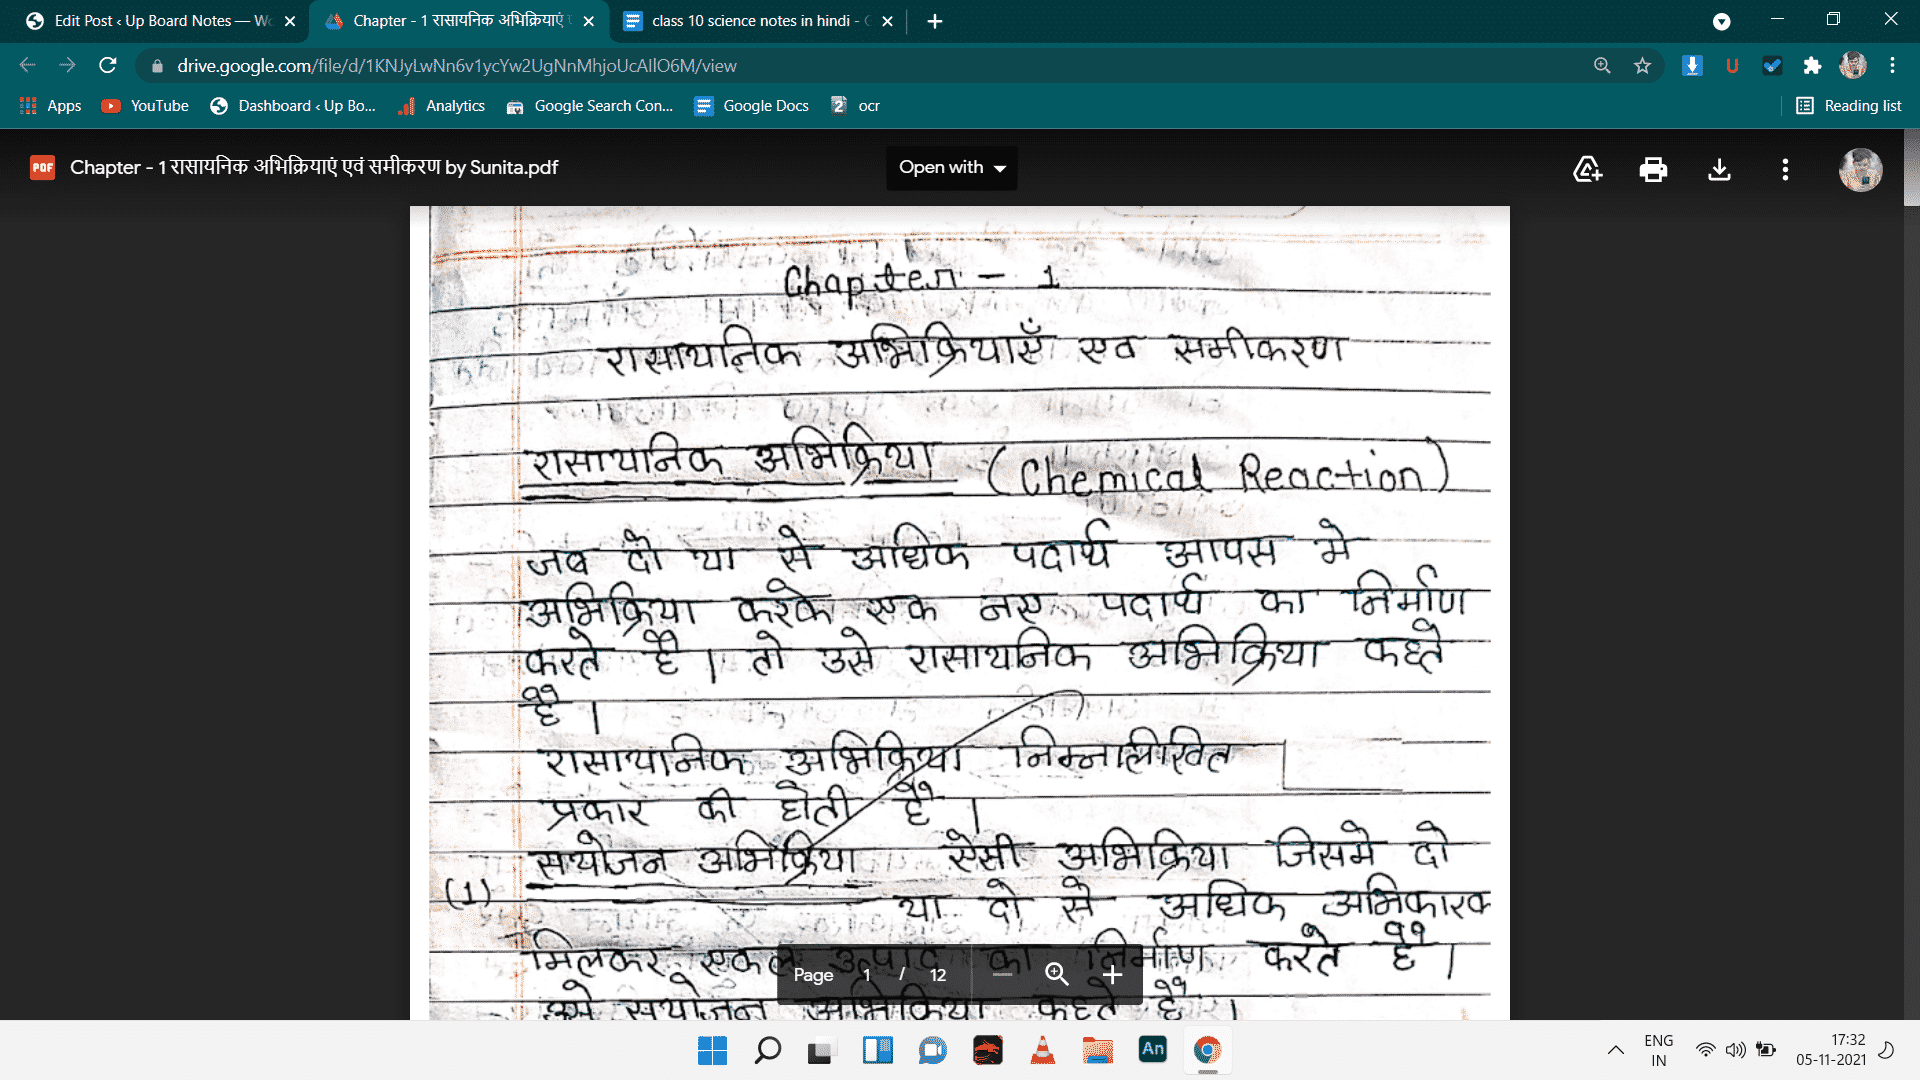 Edit Post ‹ Up Board Notes — Wo
Chapter - 1 रासायनिक अभिक्रियाएं ए
class 10 science notes in hindi - G
drive.google.com/file/d/1KNJyLwNn6v1ycYw2UgNnMhjoUcAIlO6M/view
Apps
YouTube
Dashboard ‹ Up Bo...
Analytics
Google Search Con...
Google Docs
ocr
Reading list
PDF
Chapter - 1 रासायनिक अभिक्रियाएं एवं समीकरण by Sunita.pdf
Open with
Chapter - 1
रासायनिक अभिक्रियाएँ एव समीकरण
रासायनिक अभिक्रिया (Chemical Reaction)
जब दो या से अधिक पदार्थ आपस मे
अभिक्रिया करके एक नए पदार्थ का निर्माण
करते है। तो उसे रासायनिक अभिक्रिया कहते
है।
रासायनिक अभिक्रिया निम्नलिखित
प्रकार की होती है।
(1) सयोजन अभिक्रिया ऐसी अभिक्रिया जिसमे दो
या दो से अधिक अभिकारक
मिलकर एकल उत्पाद का निर्माण करते है।
उसे सयोजन अभिक्रिया कहते है।
Page 1 / 12
An
ENG
IN
17:32
05-11-2021